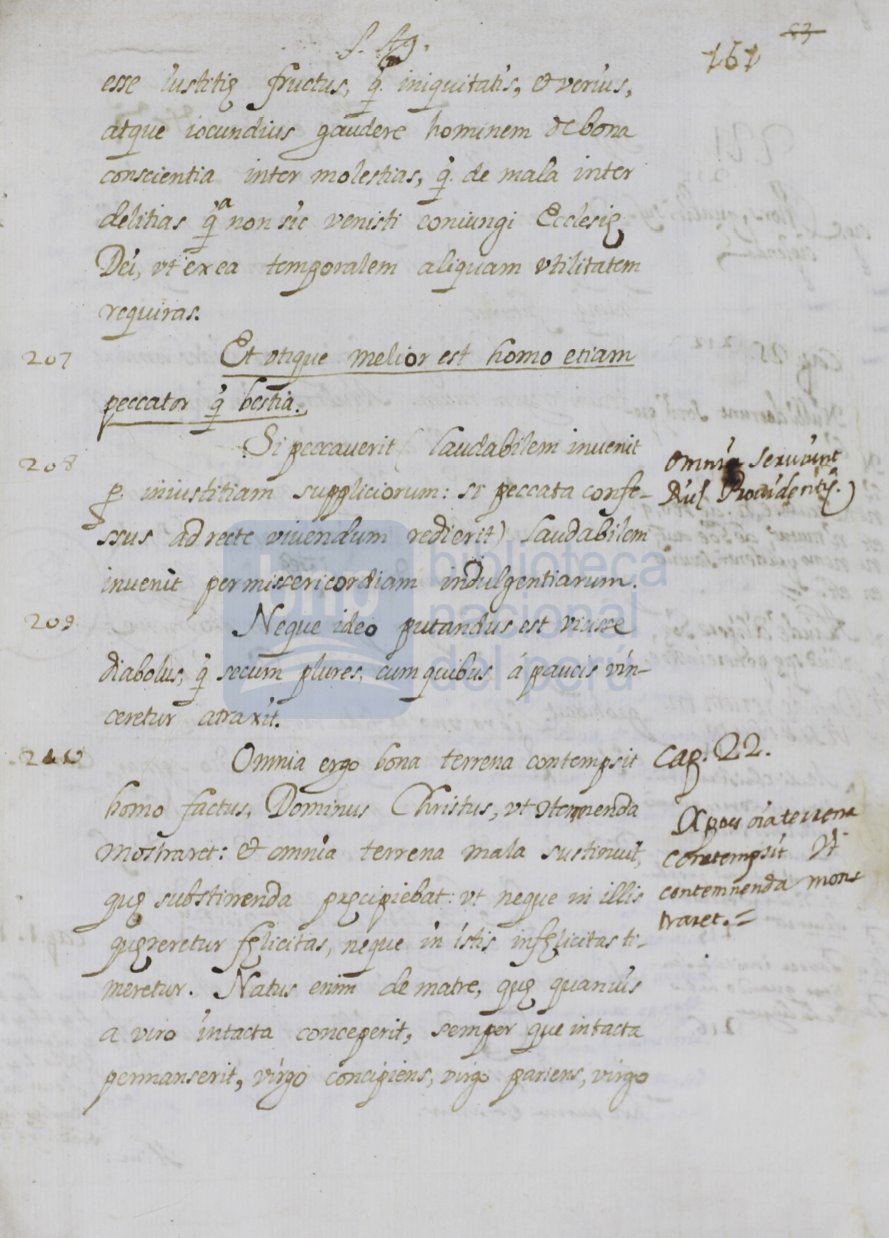 f. 49.
151
53
esse iustitię fructus, q̃. iniquitatis, et verius,
atque iocundius gaudere hominem de bona
conscientia inter molestias, q̃. de mala inter
delitias q̃a non sic venisti coniungi Ecclesię
Dei, vt ex ea temporalem aliquam vtilitatem
requiras.
207 Et vtique melior est homo etiam
peccator q̃ bestia.
208 Si peccaverit laudabilem invenit
p. iniustitiam suppliciorum: si peccata confe-
ssus ad recte vivendum redierit) laudabilem
invenit per misericordiam indulgentiarum.
Omnia serviunt
Divę Providentię.)
209 Neque ideo putandus est vicisse
diabolus, q̃ secum plures, cum quibus á paucis vin-
ceretur atraxit.
210 Omnia ergo bona terrena contempsit
homo factus, Dominus Christus, vt contemnenda
mostraret: et omnia terrena mala sustinuit,
quę substinenda pręcipiebat: vt neque in illis
quęreretur fęlicitas, neque in istis infęlicitas ti-
meretur. Natus enim de matre, quę quanvis
a viro intacta conceperit, semper que intacta
permanserit, virgo concipiens, virgo pariens, virgo
Cap. 22.
Xpus oia terrena
contempsit vt
contemnenda mons
traret.=
biblioteca
nacional
del perú
bnp